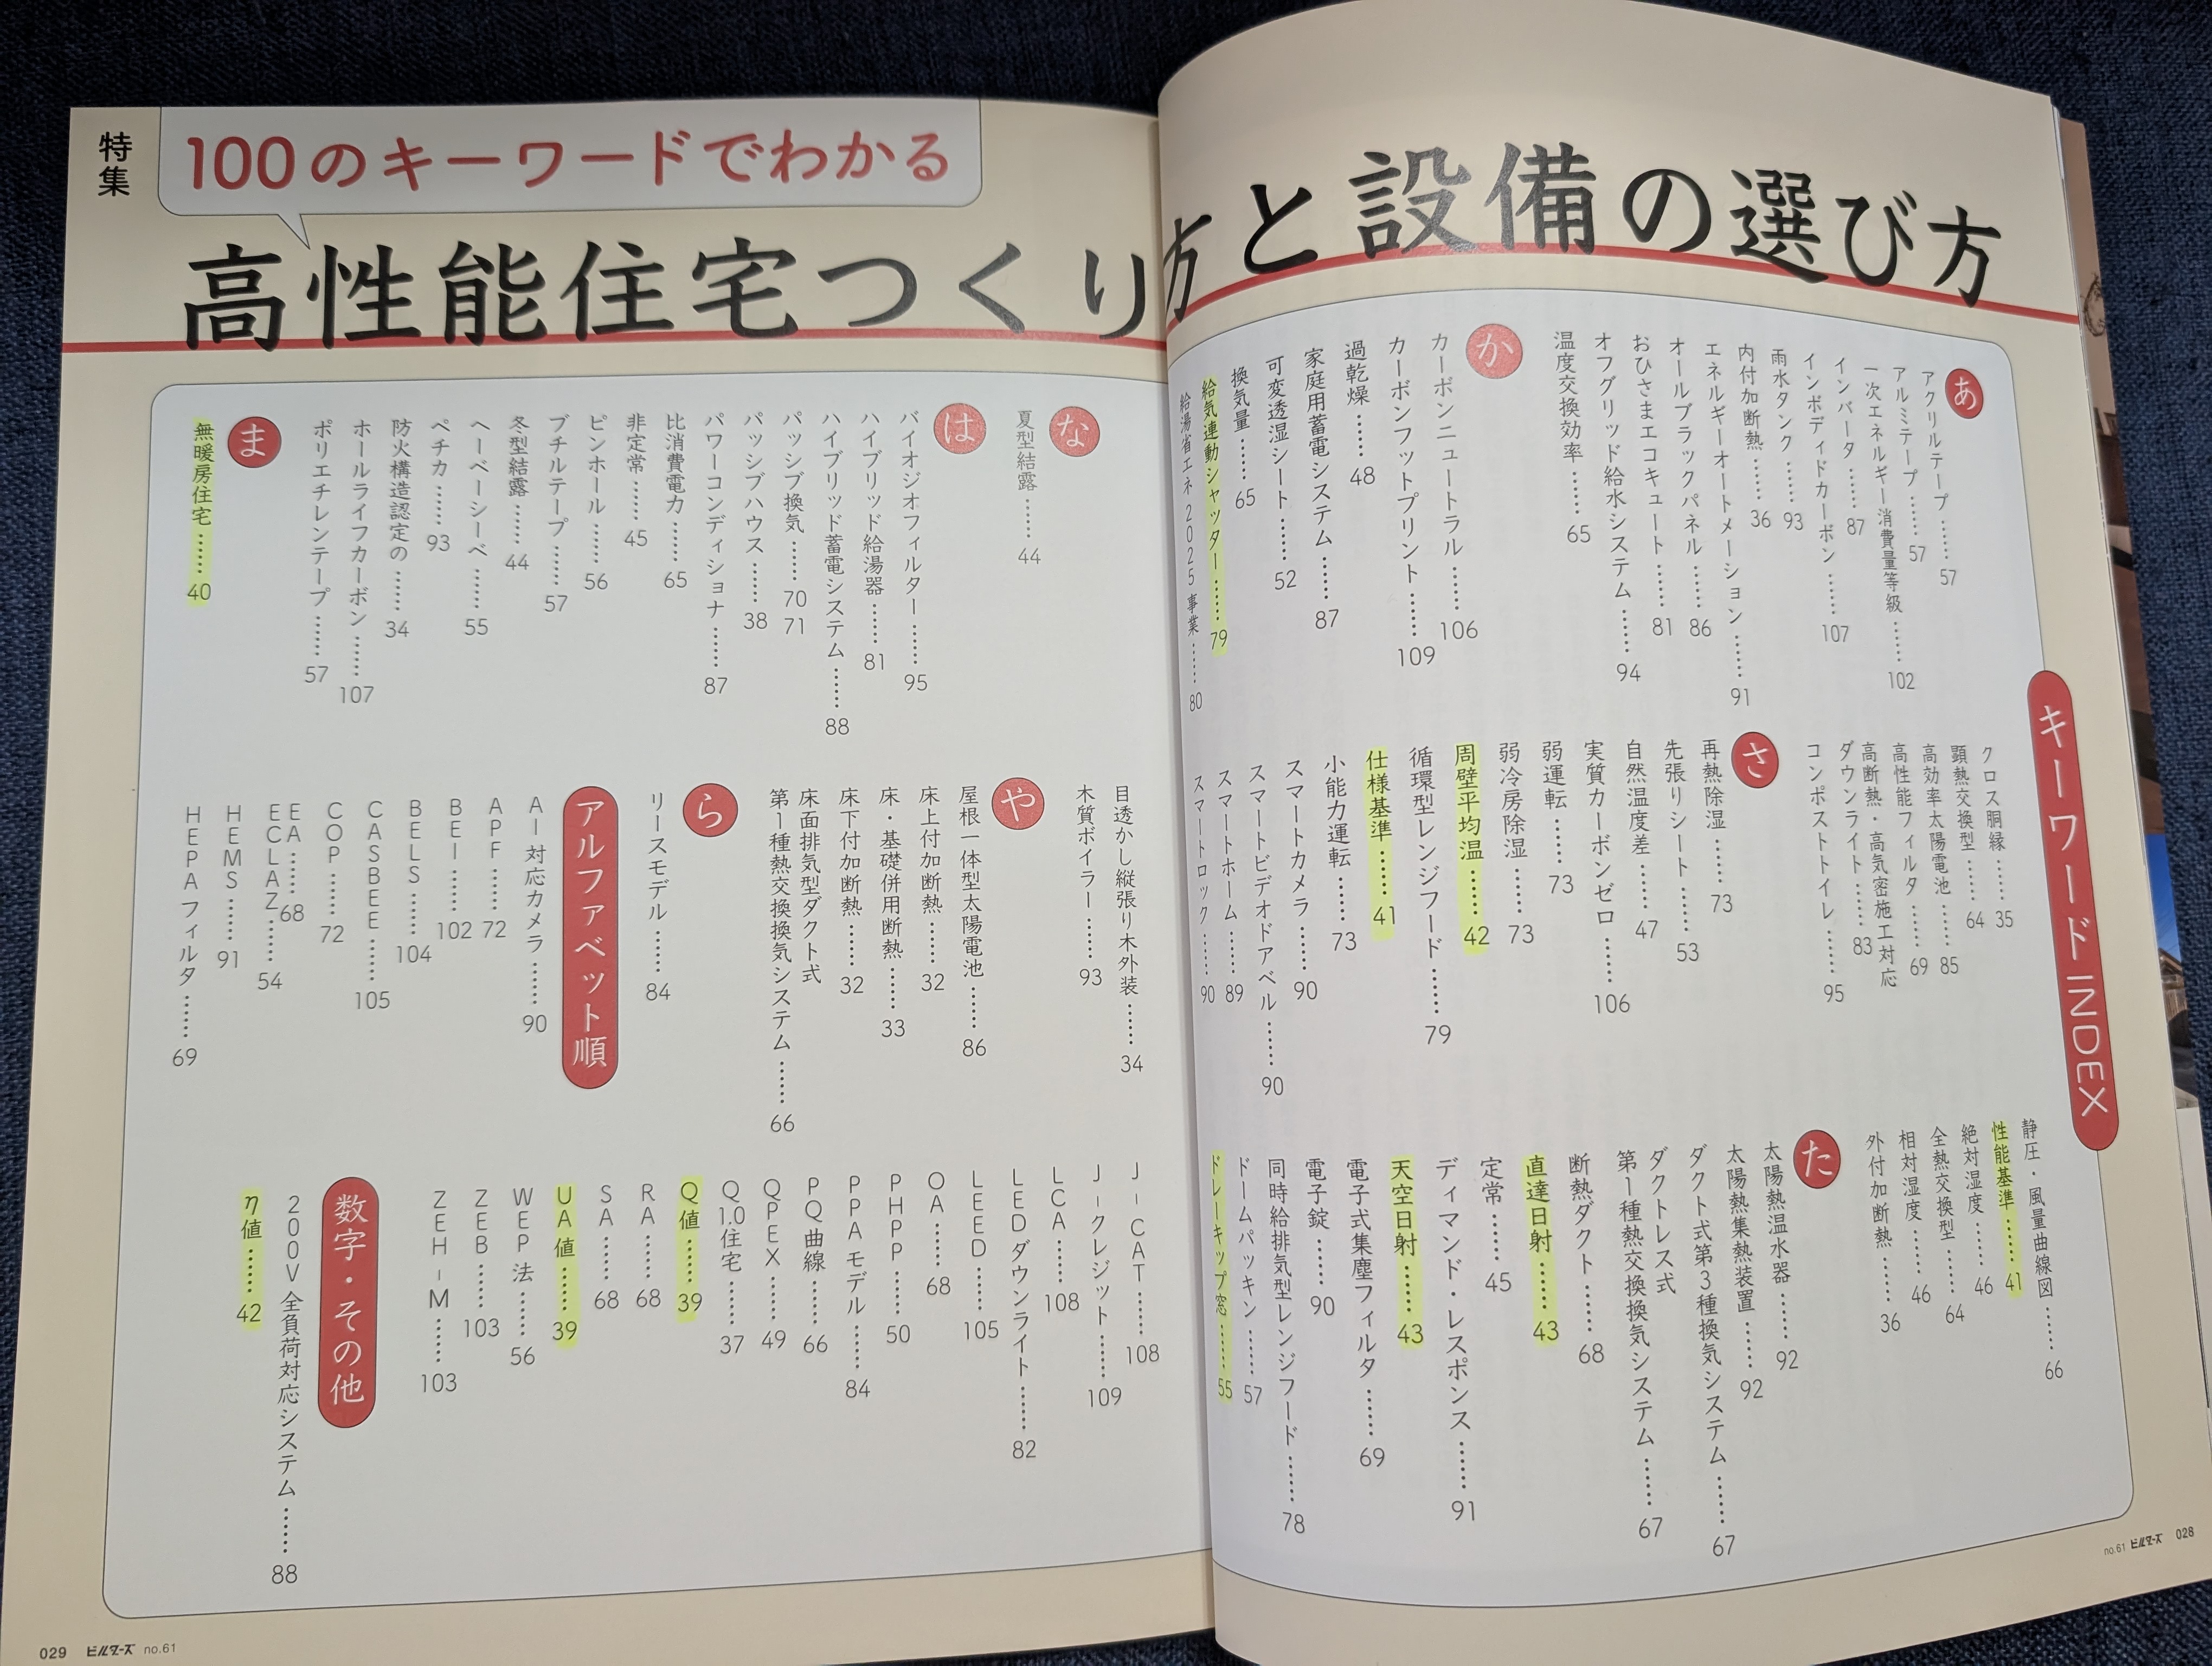 特集
100のキーワードでわかる
高性能住宅つくり方と設備の選び方
キーワードINDEX
あ
アクリルテープ……57
アルミテープ……57
一次エネルギー消費量等級……102
インバータ……87
インボディドカーボン……107
雨水タンク……93
内付加断熱……36
エネルギーオートメーション……91
オールブラックパネル……86
おひさまエコキュート……81
オフグリッド給水システム……94
温度交換効率……65
か
カーボンニュートラル……106
カーボンフットプリント……109
過乾燥……48
家庭用蓄電システム……87
可変透湿シート……52
換気量……65
給気連動シャッター……79
給湯省エネ2025事業……80
クロス胴縁……35
顕熱交換型……64
高効率太陽電池……85
高性能フィルタ……69
高断熱・高気密施工対応
ダウンライト……83
コンポストトイレ……95
さ
再熱除湿……73
先張りシート……53
自然温度差……47
実質カーボンゼロ……106
弱運転……73
弱冷房除湿……73
周壁平均温……42
循環型レンジフード……79
仕様基準……41
小能力運転……73
スマートカメラ……90
スマートビデオドアベル……90
スマートホーム……89
スマートロック……90
静圧・風量曲線図……66
性能基準……41
絶対湿度……46
全熱交換型……64
相対湿度……46
外付加断熱……36
た
太陽熱温水器……92
太陽熱集熱装置……92
ダクト式第3種換気システム……67
ダクトレス式
第1種熱交換換気システム……67
断熱ダクト……68
直達日射……43
定常……45
ディマンド・レスポンス……91
天空日射……43
電子式集塵フィルタ……69
電子錠……90
同時給排気型レンジフード……78
ドームパッキン……57
ドレーキップ窓……55
no.61 ビルダーズ 028
な
夏型結露……44
は
バイオジオフィルター……95
ハイブリッド給湯器……81
ハイブリッド蓄電システム……88
パッシブ換気……70 71
パッシブハウス……38
パワーコンディショナ……87
比消費電力……65
非定常……45
ピンホール……56
ブチルテープ……57
冬型結露……44
ヘーベーシーベ……55
ペチカ……93
防火構造認定の……34
ホールライフカーボン……107
ポリエチレンテープ……57
ま
無暖房住宅……40
目透かし縦張り木外装……34
木質ボイラー……93
や
屋根一体型太陽電池……86
床上付加断熱……32
床・基礎併用断熱……33
床下付加断熱……32
床面排気型ダクト式
第1種熱交換換気システム……66
ら
リースモデル……84
アルファベット順
AI対応カメラ……90
APF……72
BEI……102
BELS……104
CASBEE……105
COP……72
EA……68
ECLAZ……54
HEMS……91
HEPAフィルタ……69
J-CAT……108
J-クレジット……109
LCA……108
LEDダウンライト……82
LEED……105
OA……68
PHPP……50
PPAモデル……84
PQ曲線……66
QPEX……49
Q1.0住宅……37
Q値……39
RA……68
SA……68
UA値……39
WEP法……56
ZEB……103
ZEH-M……103
数字・その他
200V全負荷対応システム……88
η値……42
029 ビルダーズ no.61